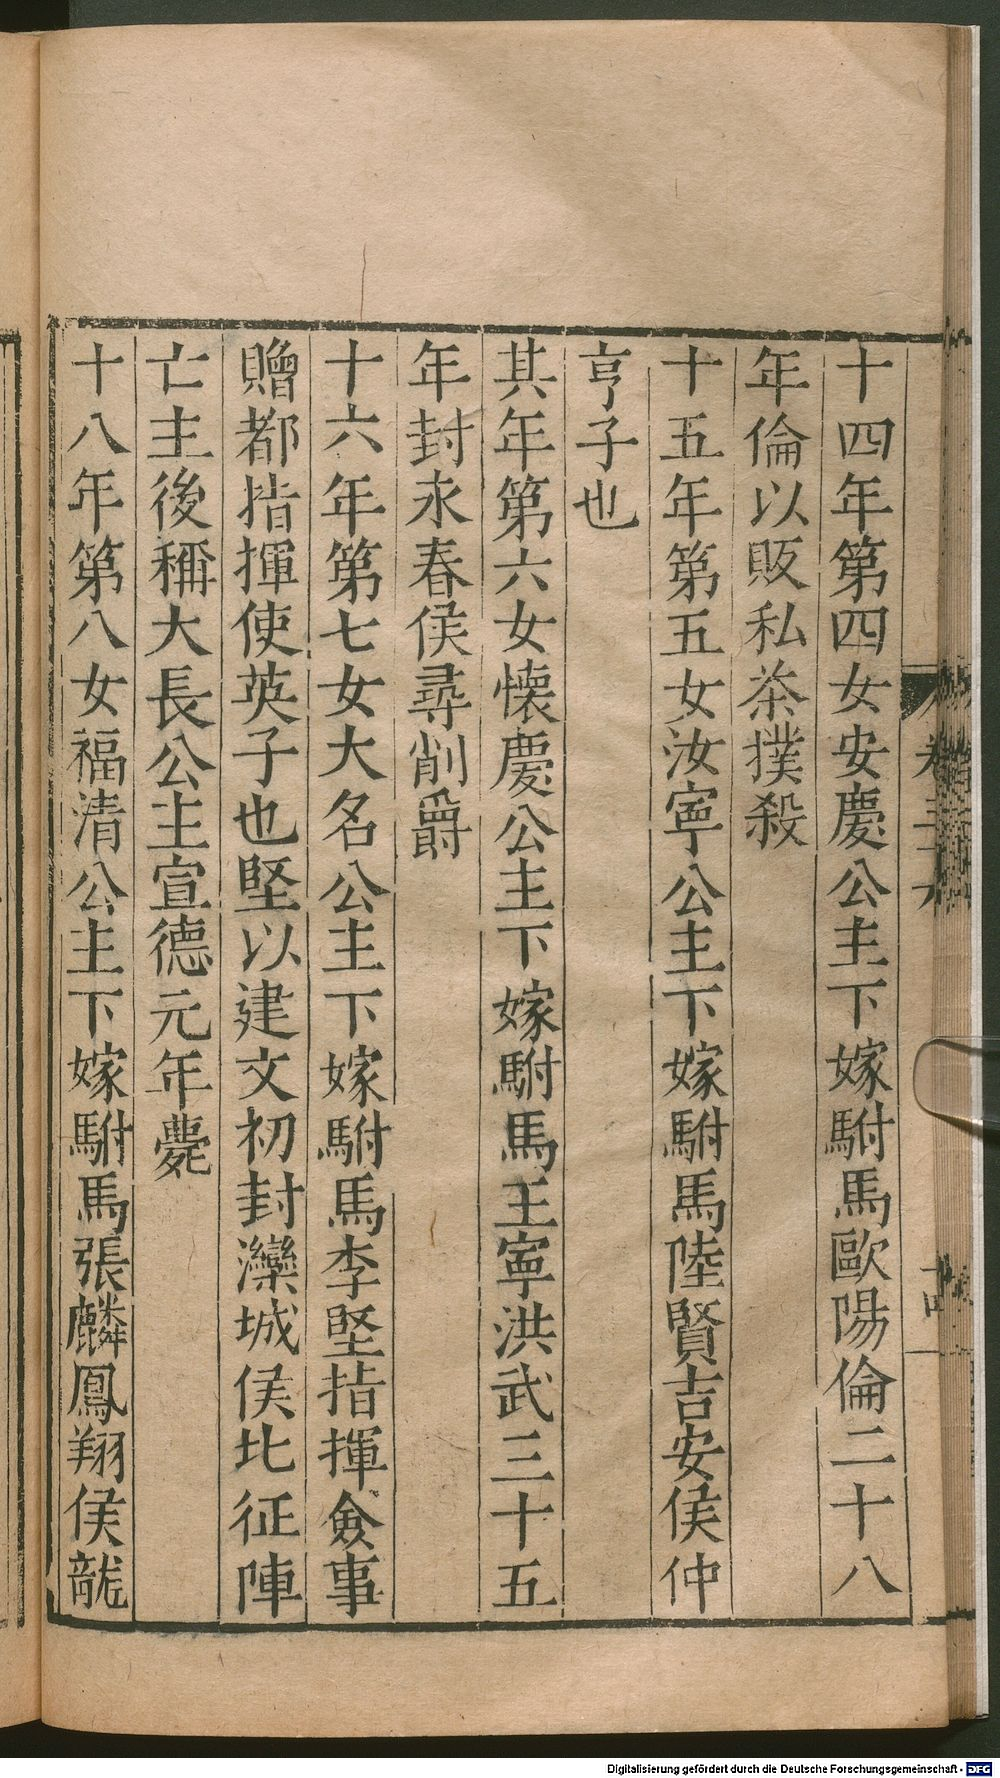 十四年第四女安慶公主下嫁駙馬歐陽倫二十八
年倫以販私茶撲殺
十五年第五女汝寧公主下嫁駙馬陸賢吉安侯仲
亨子也
其年第六女懷慶公主下嫁駙馬王寧洪武三十五
年封永春侯尋削爵
十六年第七女大名公主下嫁駙馬李堅指揮僉事
贈都指揮使英子也堅以建文初封灤城侯北征陣
亡主後稱大長公主宣德元年薨
十八年第八女福清公主下嫁駙馬張麟鳳翔侯龍
Digitalisierung gefördert durch die Deutsche Forschungsgemeinschaft - DFG